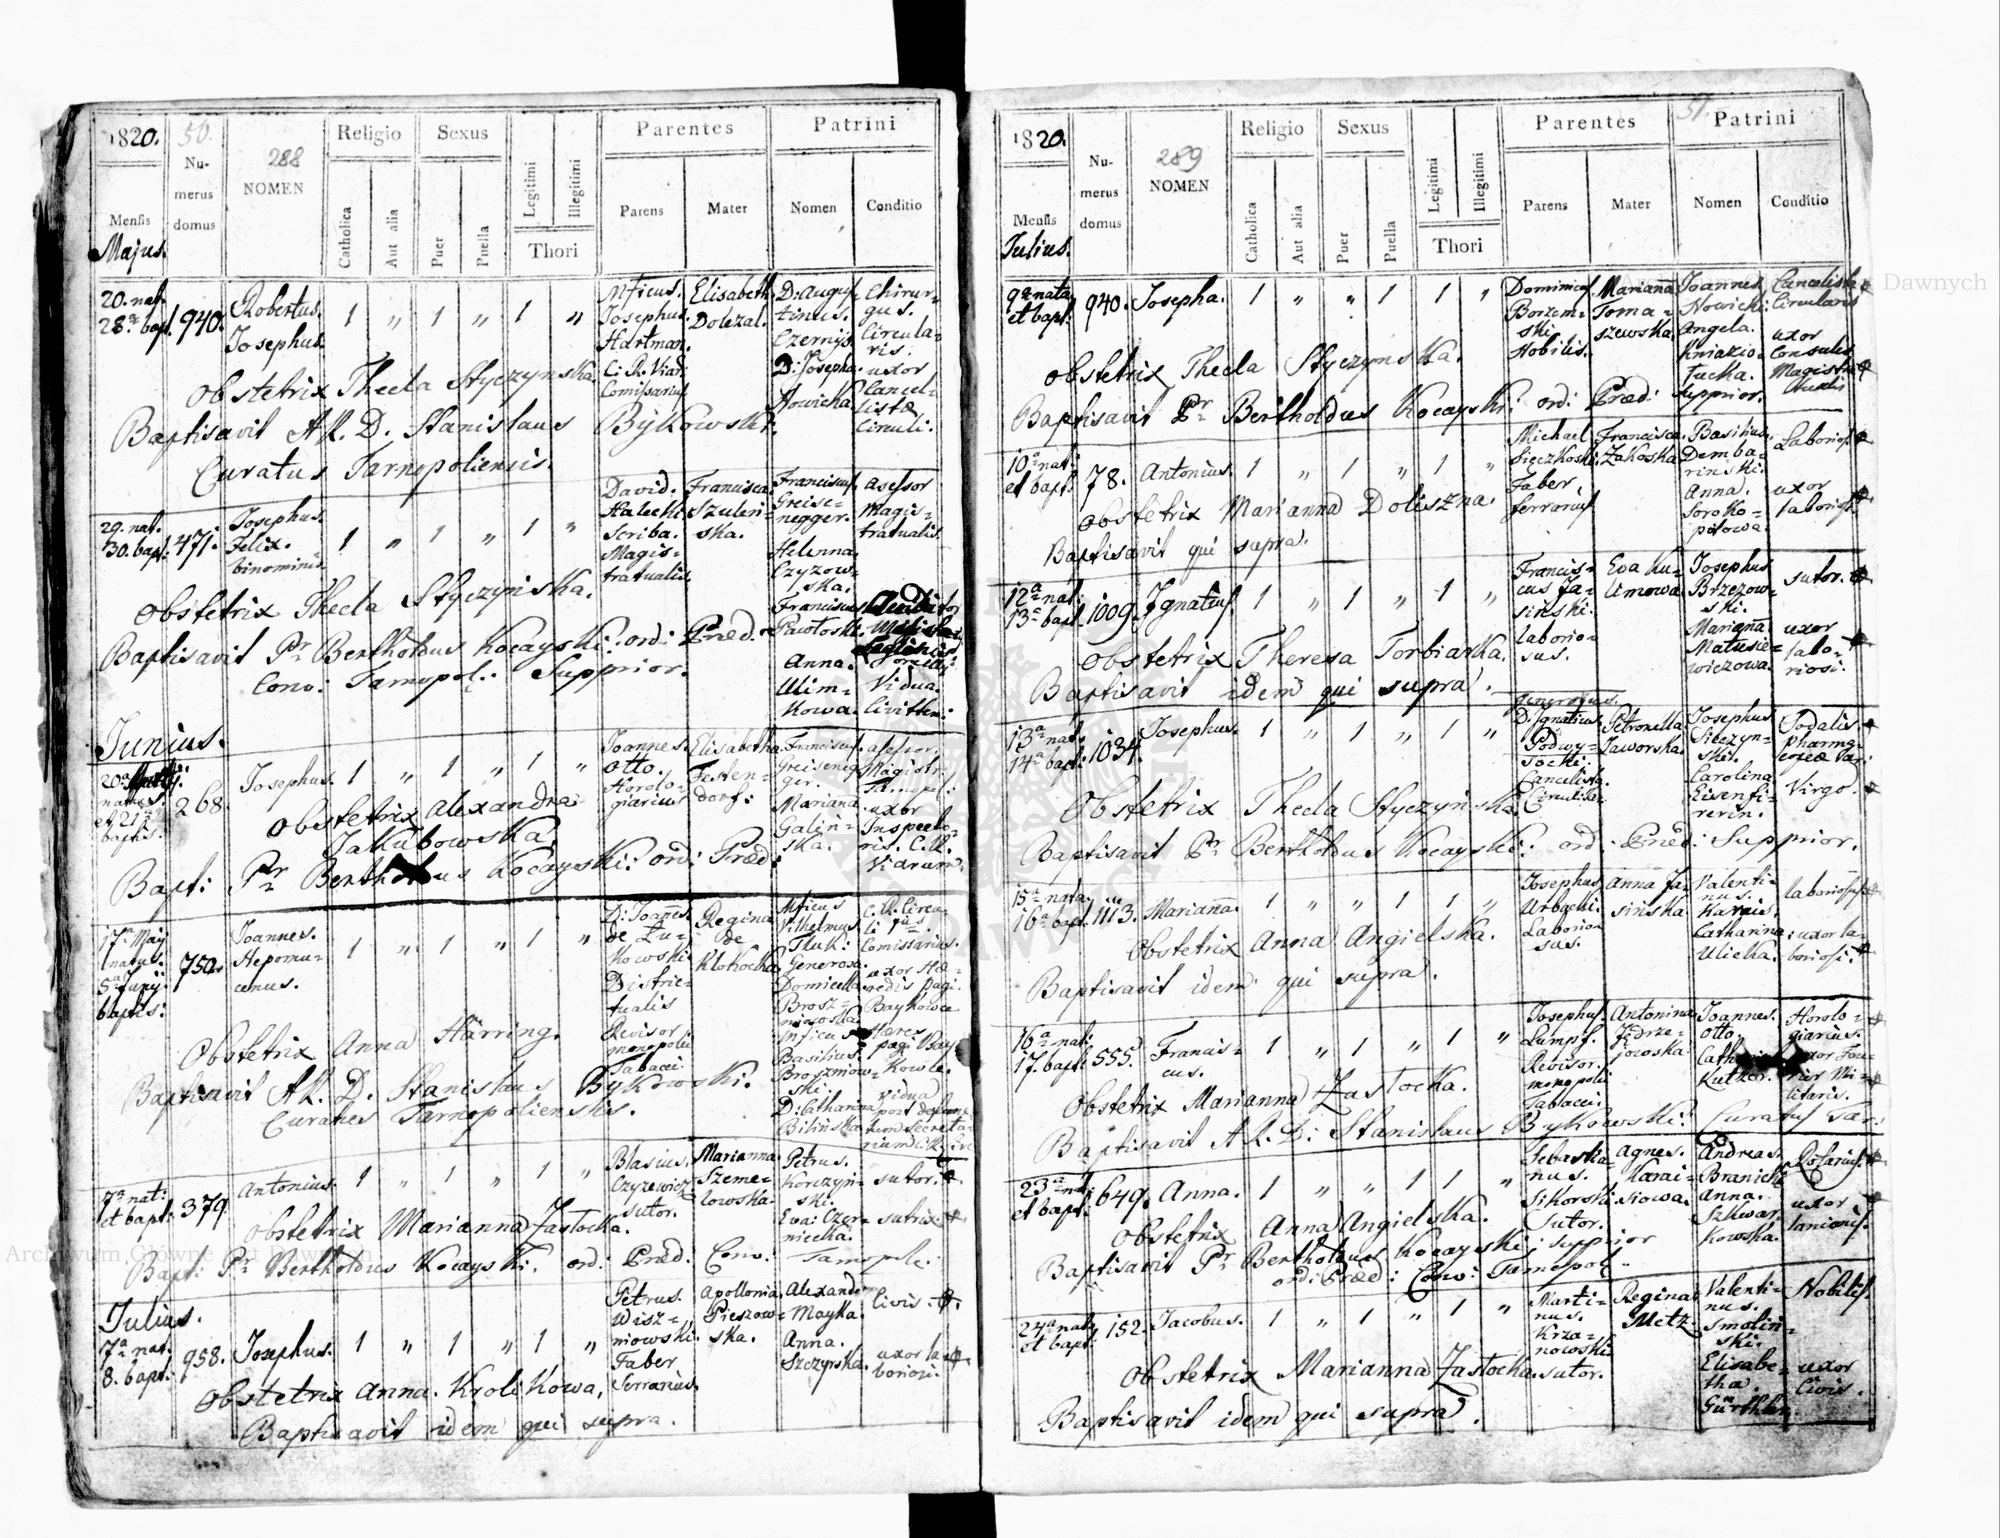 1820.
50.
Numerus domus
288
NOMEN
Religio
Sexus
Legitimi
Illegitimi
Thori
Parentes
Patrini
Mensis
Catholica
Aut alia
Puer
Puella
Parens
Mater
Nomen
Conditio
Majus.
20. nat.
28.a bapt.
940.
Robertus.
Josephus.
1 „ 1 „ 1 „
Mficus.
Josephus.
Hartman.
C: R. Viar:
Comissarius
Elisabeth.
Dolezal.
D: Augus-
tinus.
Czernys.
D: Josepha.
Nowicka.
Chirur-
gus.
Circula-
ris.
uxor
Cancel-
listæ
Circuli.
Obstetrix Thecla Styczynska.
Baptisavit A.R.D. Stanislaus Bykowski.
Curatus Tarnopoliensis.
29. nat.
30. bapt.
471.
Josephus.
Felix.
binominis
1 „ 1 „ 1 „
David.
Halecki
Scriba.
Magis-
tratualis.
Francisca.
Szulen-
ska.
Franciscus.
Greise-
negger.
Helenna.
Czyzow-
ska.
Franciscus
Pawloski.
Anna.
Ulim-
kowa.
Asessor
Magis-
tratualis.
Vidua.
Obstetrix Thecla Styczynska.
Baptisavit Pr Bertholdus Kocayski: ord: Præd:
Conv: Tarnopol: Supprior.
Junius.
natus.
et 21
baptis.
268.
Josephus.
1 „ 1 „ 1 „
Joannes.
Otto.
Horolo-
giarius
Elisabetha
Festen-
dorf:
Franciscus.
Greiseneg-
ger.
Mariana.
Galin-
ska.
Asessor.
Magistr:
Tarnopol:
uxor
Inspecto-
ris. C.R.
Viarum.
Obstetrix Alexandra
Jakubowska
Bapt: Pr Bertholdus Kocayski: ord: Præd:
17a Maij
natus.
5a Junij
baptis:
750.
Joannes.
Nepomu-
cenus.
1 „ 1 „ 1 „
D: Joannes.
de Lu-
kowski.
Distric-
tualis
Revisor
monopolii
Tabacci.
Regina
de
Klokocka
Mficus
Vilhelmus
Generosa.
Domicella
Basilius.
D: Catharina
Bilinska
C.R. Circu-
li 1us
Comissarius.
uxor Hæ-
redis pagi.
Baykowce
Hæres
pagi Bay
Kowce.
vidua
Obstetrix Anna Härring.
Baptisavit A.R.D. Stanislaus Bykowski.
Curatus Tarnopoliensis.
7a nat:
et bapt:
379
Antonius.
1 „ 1 „ 1 „
Blasius.
Czyzewicz
sutor.
Marianna
Szeme-
lowska.
Petrus.
Korczyn-
ski.
Eva: Czer-
niecka.
sutor.
sutrix.
Obstetrix Marianna Zastocka.
Bapt: Pr Bertholdus Kocayski. ord: Præd: Conv: Tarnopole:
Julius.
7a nat.
8. bapt.
958.
Josephus.
1 „ 1 „ 1 „
Petrus.
Wisz-
niowski.
Faber
Ferrarius.
Apollonia.
Pieszow-
ska.
Alexander
Mayka.
Anna.
Szczyrska.
Civis.
uxor la-
boriosi.
Obstetrix Anna Krolikowa,
Baptisavit idem qui supra.
1820.
51.
Numerus domus
289
NOMEN
Religio
Sexus
Legitimi
Illegitimi
Thori
Parentes
Patrini
Mensis
Catholica
Aut alia
Puer
Puella
Parens
Mater
Nomen
Conditio
Julius.
9a nata
et bapt.
940.
Josepha.
1 „ „ 1 1 „
Dominicus.
Borzem-
ski
Nobilis.
Marianna
Toma-
szewska.
Joannes.
Nowicki.
Angela.
Kniazio-
lucka.
Cancelista
Circularis
uxor
Consulis
Magistra-
tualis
Obstetrix Thecla Styczynska.
Baptisavit Pr Bertholdus Kocayski: ord: Præd: Supprior.
10a nat:
et bapt:
78.
Antonius.
1 „ 1 „ 1 „
Michael
Sieczkoski.
Faber
ferrarius
Francisca.
Zakoska
Basilius.
Demba-
rinski.
Anna.
Soroko-
potowa
Laborios.
uxor
laborios.
Obstetrix Marianna Doliszna.
Baptisavit qui supra.
12a nat:
13a bapt.
1009.
Ignatius.
1 „ 1 „ 1 „
Francis-
cus Ja-
sinski.
Laborio-
sus.
Eva Ku-
limowa.
Josephus
Brzezow-
ski.
Marianna
Matusie-
wiczowa.
sutor.
uxor
labo-
riosi.
Obstetrix Theresa Torbianka.
Baptisavit idem qui supra.
13a nat.
14a bapt:
1034.
Josephus.
1 „ 1 „ 1 „
Generosus.
D: Ignatius.
Podwy-
socki.
Cancelista
Circular.
Petronella.
Jaworska.
Josephus
Sieczyn-
ski.
Carolina
Eisenfi-
rerin.
Sodalis.
pharma-
copeæ Tar:
Virgo.
Obstetrix Thecla Styczynska.
Baptisavit Pr Bertholdus Kocayski: ord: Præd: Supprior.
15a nata.
16a bapt.
1113.
Marianna.
1 „ „ 1 1 „
Josephus
Urbacki.
Laborio-
sus.
Anna Ja-
sinska
Valenti-
nus.
Catharina
Ulicka.
laboriosus
uxor la-
boriosi.
Obstetrix Anna Angielska.
Baptisavit idem qui supra.
16a nat:
17. bapt
555.
Francis-
cus.
1 „ 1 „ 1 „
Josephus.
Lumpf.
Revisor.
monopolii
Tabacci.
Antonina
Jedrze-
jowska
Joannes.
Otto.
Kutzer.
Horolo-
giarius.
uxor Fou-
rier Mi-
litaris.
Obstetrix Marianna Zastocka.
Baptisavit A.R.D: Stanislaus Bykowski: Curatus Tar:
23a na:
et bapt:
649.
Anna.
1 „ „ 1 1 „
Sebastia-
nus.
Sikorski.
Sutor.
Agnes.
Karai-
siowa.
Andreas.
Branicki
Anna.
Szkwar-
kowska.
uxor
lanionis.
Obstetrix Anna Angielska.
Baptisavit Pr Bertholdus Kocayski: supprior
ord: Præd: Conv: Tarnopol.
24a nat.
et bapt:
152.
Jacobus.
1 „ 1 „ 1 „
Marti-
nus.
Krza-
nowski
sutor.
Regina.
Metz
Valenti-
nus.
Smolin-
ski.
Elisabe-
tha
Nobilis.
uxor
Civis.
Obstetrix Marianna Zastocka.
Baptisavit idem qui supra.
Archiwum Główne Akt Dawnych